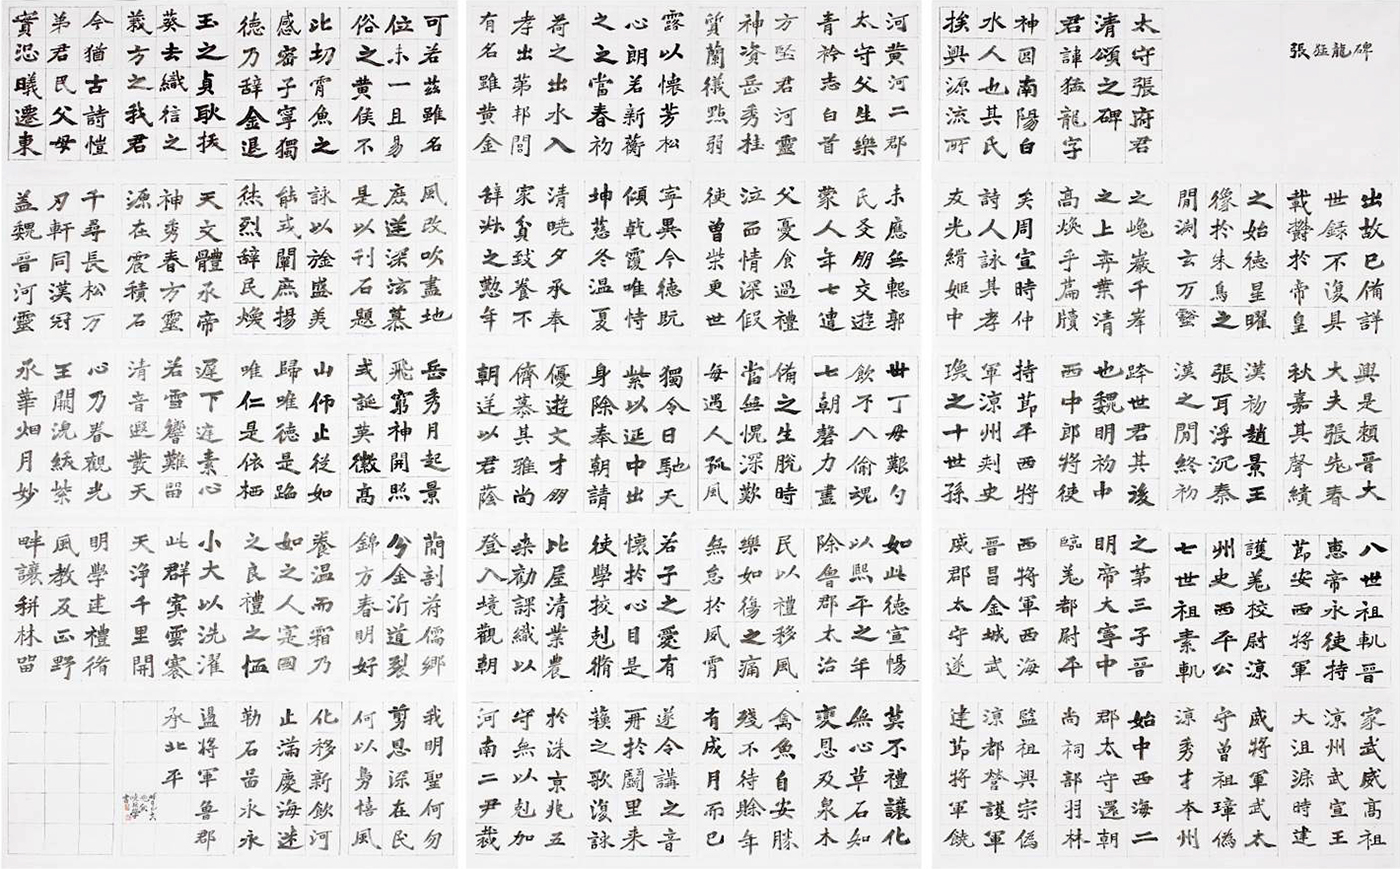 張猛龍碑
太守張府君
清頌之碑
君諱猛龍字
神囧南陽白
水人也其氏
挨興源流所
出故已備詳
世錄不復具
載鬱於帝皇
之始德星曜
像於朱鳥之
閒淵玄万壑
之巉巖千峯
之上弈葉清
高煥乎篇牘
矣周宣時仲
詩人詠其孝
友光緝姬中
興是賴晉大
大夫張先春
秋嘉其聲績
漢初趙景王
張耳浮沉秦
漢之閒終初
跨世君其後
也魏明初中
西中郎將使
持節平西將
軍涼州刺史
瑍之十世孫
八世祖軌晉
惠帝永使持
節安西將軍
護羌校尉涼
州史西平公
七世祖素軌
之第三子晉
明帝大寧中
臨羌都尉平
西將軍西海
晉昌金城武
威郡太守遂
家武威高祖
涼州武宣王
大沮渠時建
威將軍武太
守曾祖璋偽
涼秀才本州
始中西海二
郡太守還朝
尚祠部羽林
監祖興宗偽
涼都營護軍
建節將軍饒
河黄河二郡
太守父生樂
青衿志白首
方堅君河靈
神資岳秀桂
質蘭儀點弱
露以懷芳松
心朗若新蘅
之之當春初
荷之出水入
孝出第邦閭
有名雖黄金
未應無慙郭
氏友朋交遊
蒙人年七遭
父憂食過禮
泣血情深假
使曾柴更世
寧異今德既
傾乾覆唯恃
坤慈冬温夏
清曉夕承奉
家貧致養不
辞之懃年
卅丁母艱勺
飲不入偷魂
七朝磬力盡
備之生脫時
當無愧深歎
每遇人孤風
獨令日馳天
紫以延中出
身除奉朝請
優遊文才朋
儕慕其雅尚
朝廷以君蔭
如此德宣暢
以熙平之年
除魯郡太治
民以禮移風
樂如傷之痛
無怠於夙宵
若子之愛有
懷於心目是
使學挍剋脩
比屋清業農
桒勸課織以
登入境觀朝
莫不禮讓化
無心草石知
変恩及泉木
禽魚自安勝
殘不待賒年
有成月而已
遂令講之音
再於闕里来
蘓之歌復詠
於洙京兆五
守無以剋加
河南二尹裁
可若茲雖名
位未一且易
俗之黄侯不
此切霄魚之
感密子寧獨
德乃辞金退
玉之貞耿
葵去織信之
義方之我君
今猶古詩愷
弟君民父母
實恐曦遷東
風改吹盡地
庶深法慕
是以刊石題
詠以旌盛美
能式闡庶揚
烋烈辞民煥
天文體承帝
神秀春方靈
源在震積石
千尋長松万
刃軒同漢冠
盖魏晉河靈
岳秀月起景
飛窮神開照
式誕英徽高
山仰止從如
歸唯德是蹈
唯仁是依栖
遲下庭素心
若雪響難留
清音遐發天
心乃眷觀光
王闕浼紫
承華烟月妙
蘭剖符儒鄉
兮金沂道裂
錦方春明好
養温而霜乃
如之人寔國
之良禮之恤
小大以洗濯
此群冥雲褰
天淨千里開
明學建禮脩
風教反正野
畔讓耕林留
我明聖何勿
剪恩深在民
何以曷憘風
化移新飲河
止滿慶海迷
勒石啚永永
盪將軍魯郡
承北平